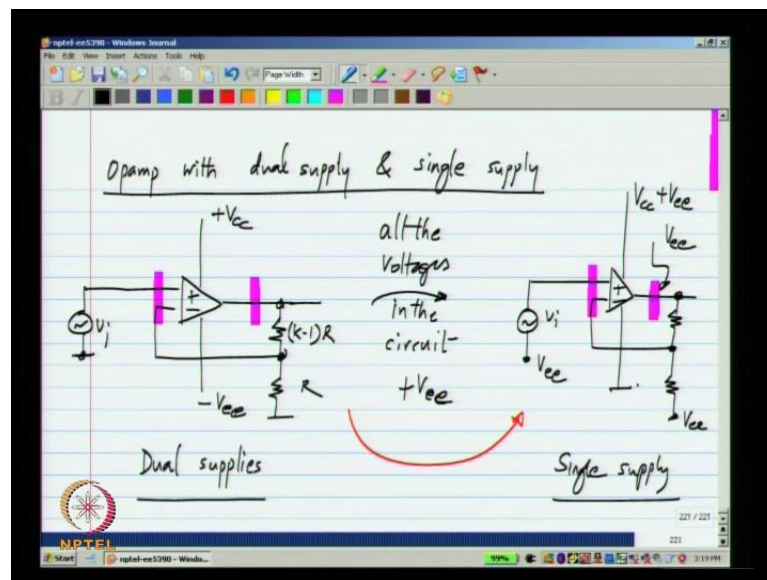 nptel-ee5390 - Windows Journal
File Edit View Insert Actions Tools Help
Page Width
B I
Opamp with dual supply & single supply
+Vcc
Vcc+Vee
Vee
all the
voltages
in the
circuit
+Vee
+
-
Vi
(K-1)R
R
-Vee
+
-
Vi
Vee
Vee
Dual supplies
Single supply
NPTEL
221 / 221
221
Start
nptel-ee5390 - Windo...
99%
3:19 PM